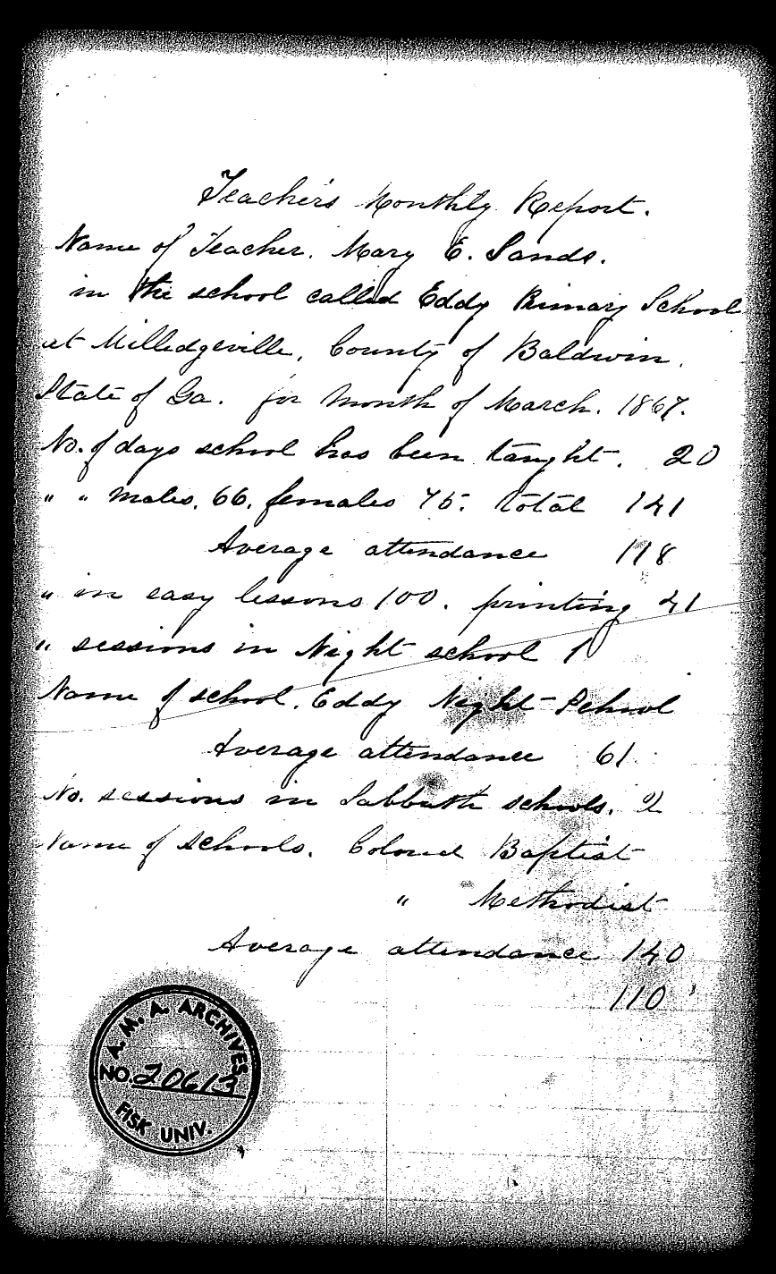 Teacher's Monthly Report.
Name of Teacher. Mary E. Sands.
in the school called Eddy Primary School
at Milledgeville, County of Baldwin.
State of Ga. for month of March. 1867.
No. of days school has been taught. 20
" " males. 66. females 75. total 141
Average attendance 118
" in easy lessons 100. printing 41
" sessions in Night school 1
Name of school. Eddy Night-School
Average attendance 61.
No. sessions in Sabbath schools. 2
Name of schools. Colored Baptist
" Methodist
Average attendance 140
110
A. M. A. ARCHIVES
NO. 20613
FISK UNIV.